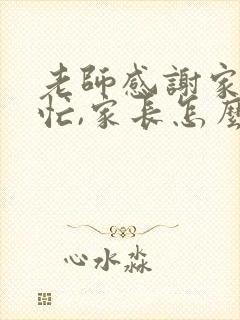 老師感謝家
忙,家長怎麼
心水淼